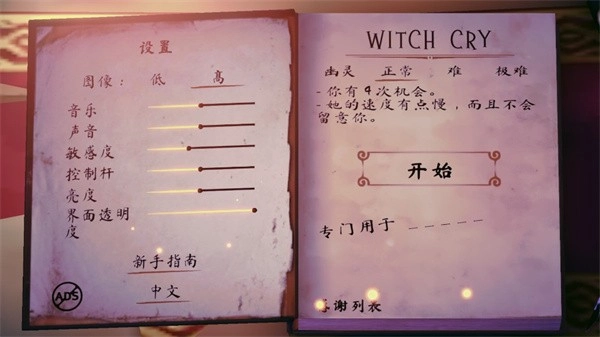 设置
图像： 低 高
音乐
声音
敏感度
控制杆
亮度
界面透明
度
新手指南
中文
ADS
WITCH CRY
幽灵 正常 难 极难
-你有4次机会。
-她的速度有点慢，而且不会
留意你。
开始
专门用于 _ _ _ _ _
谢列表